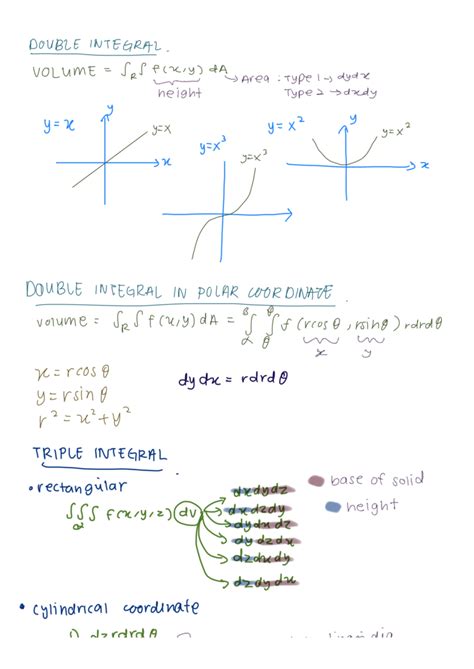 DOUBLE INTEGRAL.
VOLUME = ∫R∫ f(x,y) dA → Area : Type 1 → dydx
height Type 2 → dxdy
y = x y y=x x
y=x³ y=x³
y = x² y y=x² x
DOUBLE INTEGRAL IN POLAR COORDINATE.
volume = ∫R∫ f(x,y) dA = ∫ ∫ f (rcosθ, rsinθ) rdrdθ
x y
x = rcosθ
y = rsinθ
r² = x² + y²
dydx = rdrdθ
TRIPLE INTEGRAL
• rectangular
∫∫∫ f(x,y,z) dV
dxdydz
dxdzdy
dydxdz
dydzdx
dzdxdy
dzdydx
base of solid
height
• cylindrical coordinate
1) dzrdrdθ